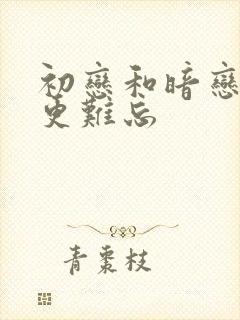 初戀和暗戀
更難忘
青棗枝